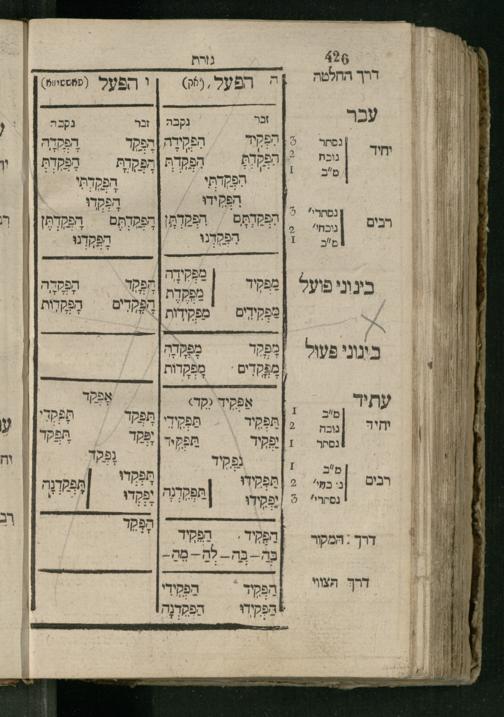 426
גזרת
דרך החלטה ה הפעל, ו הפעל
עבר
זכר נקבה זכר נקבה
יחיד נסתר 3 הִפְקִיד הִפְקִידָה הָפְקַד הָפְקְדָה
נוכח 2 הִפְקַדְתָּ הִפְקַדְתְּ הָפְקַדְתָּ הָפְקַדְתְּ
מ"ב 1 הִפְקַדְתִּי הָפְקַדְתִּי
רבים נסתרי' 3 הִפְקִידוּ הָפְקְדוּ
נוכחי' 2 הִפְקַדְתֶּם הִפְקַדְתֶּן הָפְקַדְתֶּם הָפְקַדְתֶּן
מ"ב 1 הִפְקַדְנוּ הָפְקַדְנוּ
בינוני פועל מַפְקִיד מַפְקִידָה הָפְקַד הָפְקָדָה
מַפְקֶדֶת
מַפְקִידִים מַפְקִידוֹת הָפְקָדִים הָפְקָדוֹת
בינוני פעול מָפְקָד מָפְקָדָה
מָפְקָדִים מָפְקָדוֹת
עתיד
יחיד מ"ב 1 אַפְקִיד אָפְקַד
נוכח 2 תַּפְקִיד תַּפְקִידִי תָּפְקַד תָּפְקְדִי
נסתר 1 יַפְקִיד תַּפְקִיד יָפְקַד תָּפְקַד
רבים מ"ב 1 נַפְקִיד נָפְקַד
2 תַּפְקִידוּ תַּפְקֵדְנָה תָּפְקְדוּ תָּפְקַדְנָה
נסתרי' 3 יַפְקִידוּ יָפְקְדוּ
דרך המקור הַפְקִיד הַפְקֵיד הָפְקֵד
בְּהַ–בְּהַ–לְהַ–מֵהַ–
דרך הצווי הַפְקִיד הַפְקִידִי
הַפְקִידוּ הַפְקֵדְנָה